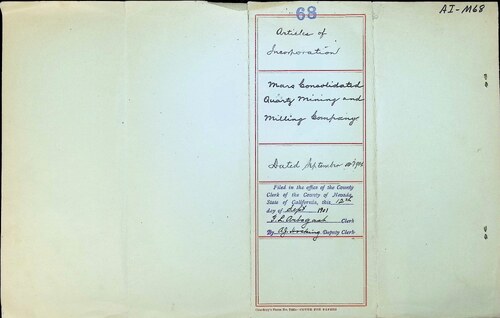 68
AI-M68
Articles of
Incorporation
Mars Consolidated
Quartz Mining and
Milling Company
Dated September
Filed in the office of the County
Clerk of the County of Nevada,
State of California, this 12th
day of Sept 1901
F. L. Arbogast Clerk
By Deputy Clerk